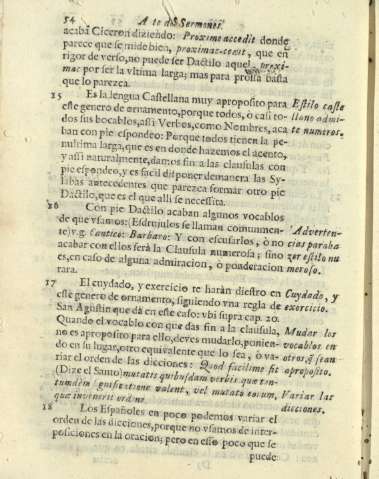 54 Arte de Sermones.
acaba Ciceron diziendo: Proxime accedit donde
parece que se mide bien, proximac-cedit, que en
rigor de verso, no puede ser Dactilo aquel proxi-
mac por ser la vltima larga; mas para prossa basta
que lo parezca.
15 Es la lengua Castellana muy aproposito para
este genero de ornamento, porque todos, ò casi to-
dos sus bocablos, assi Verbos, como Nombres, aca
ban con pie espondeo: Porque todos tienen la pe-
nultima larga, que es en donde hazemos el acento,
y assi naturalmente, damos fin a las clausulas con
pie espondeo, y es facil disponer demanera las Sy-
labas antecedentes que parezca formar otro pie
Dactilo, que es el que alli se necessita.
Estilo caste
llano admi-
te numeros.
16 Con pie Dactilo acaban algunos vocablos
de que vsamos: (Esdrujulos se llaman comunmen-
te) v.g. Cantico: Barbaro: Y con escusarlos, ò no
acabar con ellos serà la Clausula numerosa; sino
es, en caso de alguna admiracion, ò ponderacion
rara.
Adverten-
cias paraha
zer estilo nu
meroso.
17 El cuydado, y exercicio te haràn diestro en
este genero de ornamento, siguiendo vna regla de
San Agustin que dà en este caso: vbi supra cap. 20.
Quando el vocablo con que das fin a la clausula,
no es aproposito para ello, deves mudarlo, ponien-
do en su lugar, otro equivalente que lo sea, ò va-
riar el orden de las dicciones: Quod facilime fit
(Dize el Santo) mutatis quibusdam verbis que tan-
tumdem significatione valent, vel mutato eorum,
que inveneris ordine.
Cuydado, y
exercicio.
Mudar los
vocablos en
otros q̃ sean
aproposito.
Variar las
dicciones.
18 Los Españoles en poco podemos variar el
orden de las dicciones, porque no vsamos de inter-
posiciones en la oracion; pero en esso poco que se
puede